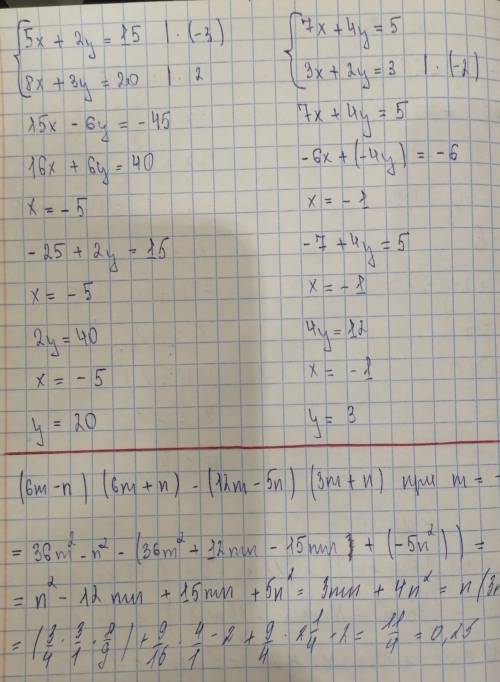 5x + 2y = 15 | · (-3)
8x + 3y = 20 | · 2
15x - 6y = -45
16x + 6y = 40
x = -5
-25 + 2y = 15
x = -5
2y = 40
x = -5
y = 20
7x + 4y = 5
3x + 2y = 3 | · (-2)
7x + 4y = 5
-6x + (-4y) = -6
x = -1
-7 + 4y = 5
x = -1
4y = 12
x = -1
y = 3
(6m - n) (6m + n) - (12m - 5n) (3m + n) при m = -
= 36m² - n² - (36m² + 12mn - 15mn + (-5n²)) =
= n² - 12mn + 15mn + 5n² = 3mn + 4n² = n (3
= (3/4 · 3/1 · 2/9) + 9/16 · 4/1 - 2 + 9/4 · 2 1/4 - 2 = 11/4 = 0,25